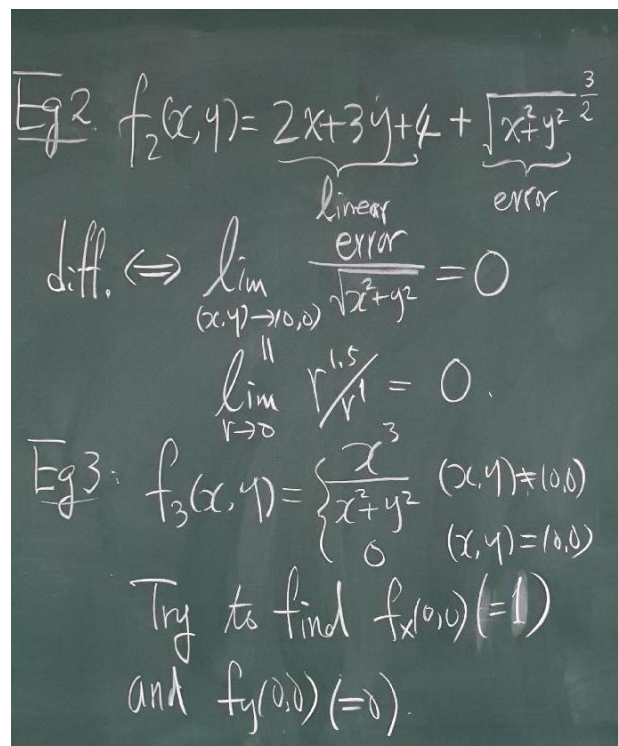 Eg2. f₂(x,y)= 2x+3y+4 + √(x²+y²)^(3/2)
linear error
diff. ⇔ lim_{(x,y)→(0,0)} error/√(x²+y²) = 0
||
lim_{r→0} r^1.5/r^1 = 0.
Eg3: f₃(x,y)= { x³/(x²+y²) (x,y)≠(0,0)
0 (x,y)=(0,0)
Try to find fₓ(0,0)(=1)
and f_y(0,0)(=0).